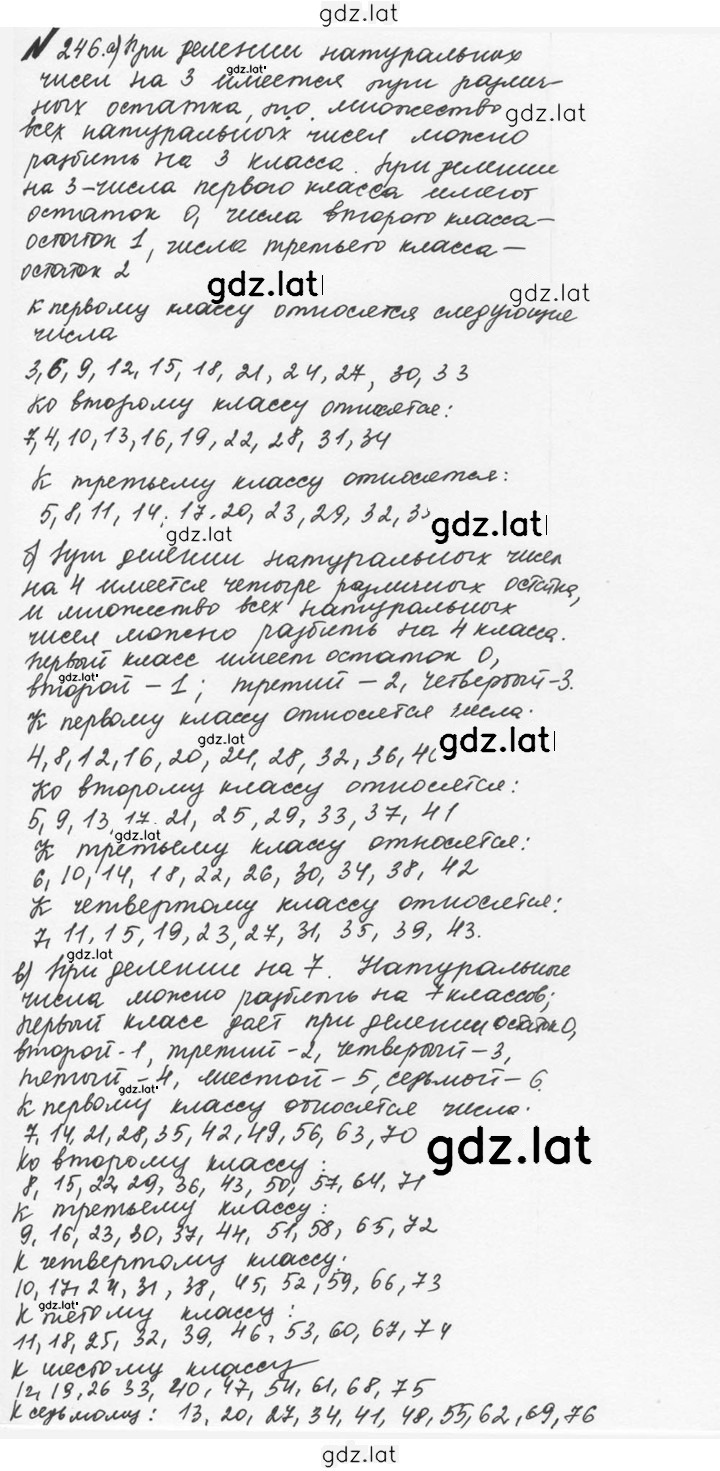 gdz.lat
N 246. а) При делении натуральных
gdz.lat
чисел на 3 имеется три различ-
ных остатка, т.о. множество
gdz.lat
всех натуральных чисел можно
разбить на 3 класса. При делении
на 3-числа первого класса имеют
остаток 0, числа второго класса-
остаток 1, числа третьего класса-
остаток 2
gdz.lat
gdz.lat
К первому классу относятся следующие
числа
3, 6, 9, 12, 15, 18, 21, 24, 27, 30, 33
Ко второму классу относятся:
7, 4, 10, 13, 16, 19, 22, 28, 31, 34
К третьему классу относятся:
5, 8, 11, 14, 17. 20, 23, 29, 32, 3
gdz.lat
gdz.lat
б) При делении натуральных чисел
на 4 имеется четыре различных остатка,
и множество всех натуральных
чисел можно разбить на 4 класса.
Первый класс имеет остаток 0,
gdz.lat
второй - 1; третий - 2, четвертый - 3.
К первому классу относятся числа.
gdz.lat
4, 8, 12, 16, 20, 24, 28, 32, 36, 40
gdz.lat
Ко второму классу относятся:
5, 9, 13, 17. 21, 25, 29, 33, 37, 41
gdz.lat
К третьему классу относятся:
6, 10, 14, 18, 22, 26, 30, 34, 38, 42
К четвертому классу относятся:
7, 11, 15, 19, 23, 27, 31, 35, 39, 43.
gdz.lat
в) При делении на 7. Натуральные
числа можно разбить на 7 классов;
первый класс дает при делении остаток 0,
второй - 1, третий - 2, четверый - 3,
пятый - 4, шестой - 5, седьмой - 6.
gdz.lat
К первому классу относятся числа.
7, 14, 21, 28, 35, 42, 49, 56, 63, 70
gdz.lat
Ко второму классу:
8, 15, 22, 29, 36, 43, 50, 57, 64, 71
К третьему классу:
9, 16, 23, 30, 37, 44, 51, 58, 65, 72
К четвертому классу:
10, 17, 24, 31, 38, 45, 52, 59, 66, 73
gdz.lat
К пятому классу:
11, 18, 25, 32, 39, 46, 53, 60, 67, 74
К шестому классу
12, 19, 26 33, 40, 47, 54, 61, 68, 75
К седьмому: 13, 20, 27, 34, 41, 48, 55, 62, 69, 76
gdz.lat